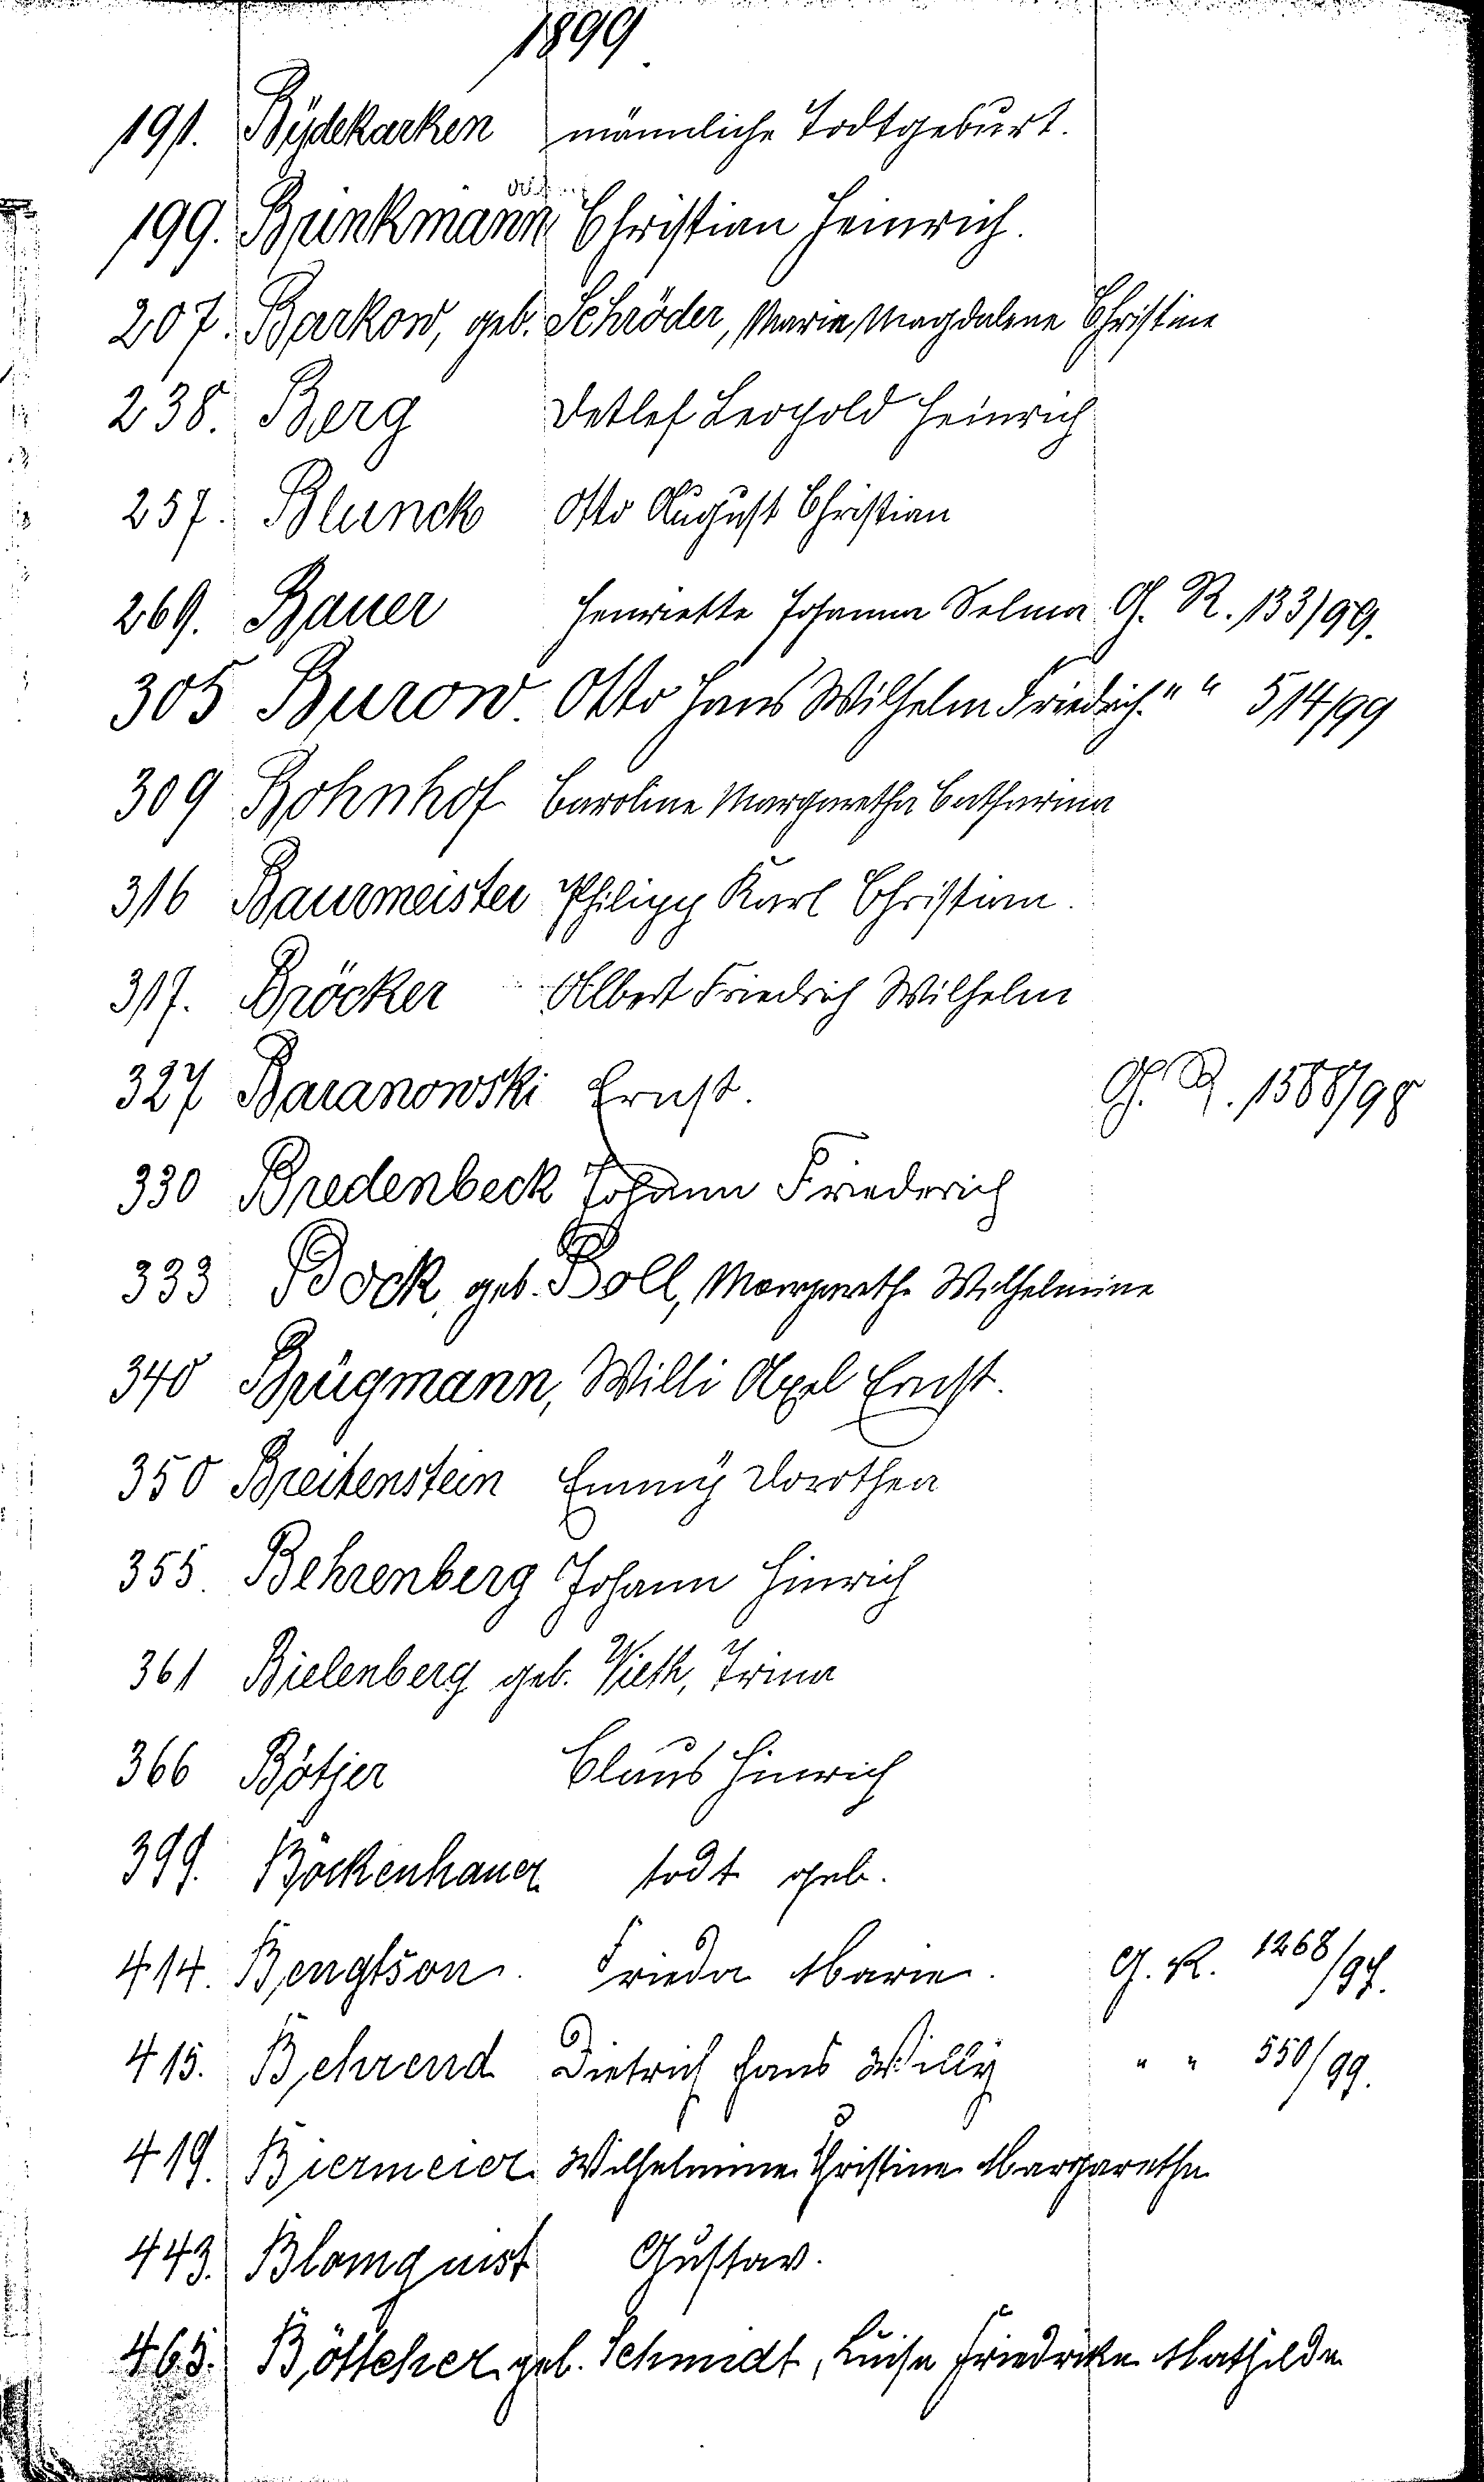 1899.
191. Büdekarken männliche Todtgeburt.
199. Brinkmann Christian Heinrich.
207. Barkow, geb. Schröder, Marie Magdalene Christine
238. Berg Detlef Leopold Heinrich
257. Blunck Otto August Christian
269. Bauer Henriette Johanna Selma G. R. 133/99.
305 Burow. Otto Hans Wilhelm Friedrich. " " 514/99
309 Bohnhof Caroline Margaretha Catharina
316 Baurmeister Philipp Karl Christian.
317. Bröcker Albert Friedrich Wilhelm
327 Baranowski Ernst. G. R. 1588/98
330 Bredenbeck Johann Friederich
333 Bock, geb. Boll, Margarethe Wilhelmine
340 Brügmann, Willi Axel Ernst.
350 Breitenstein Emmÿ Dorothea
355. Behrenberg Johann Hinrich
361 Bielenberg geb. Vieth, Trina
366 Bötjer Claus Hinrich
399. Böckenhauer todt geb.
414. Bengtson. Frieda Marie. G. R. 1268/97.
415. Behrend Dietrich Hans Willy " " 550/99.
419. Biermeier. Wilhelmine Christine Margarethe
443. Blomquist Gustav.
465. Böttcher geb. Schmidt, Luise Friedrike Mathilde